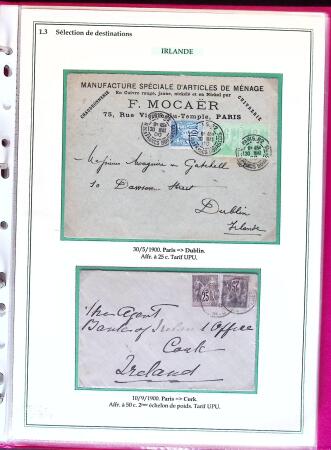 1.3 Sélection de destinations
IRLANDE
MANUFACTURE SPÉCIALE D'ARTICLES DE MÉNAGE
En Cuivre rouge, jaune, nickelé et en Nickel pur
CHAUDRONNERIE
CUIVRERIE
F. MOCAËR
75, Rue Vieille-du-Temple, PARIS
Messieurs Maguire & Gatchell
10 Dawson Street
Dublin
Irlande
30/5/1900. Paris => Dublin.
Affr. à 25 c. Tarif UPU.
25
The Agent
Bank of Ireland Office
Cork
Ireland
10/9/1900. Paris => Cork.
Affr. à 50 c. 2ème échelon de poids. Tarif UPU.